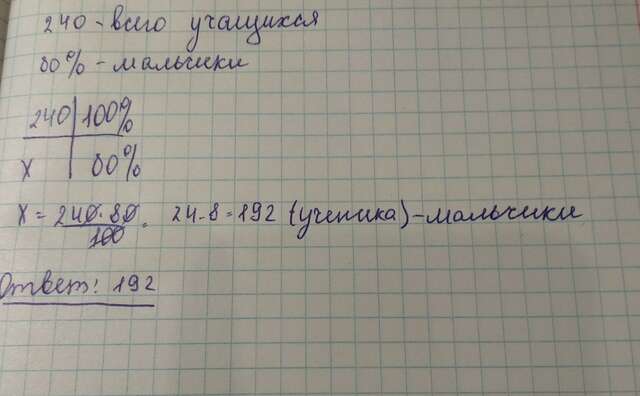 240 - всего учащихся
80% - мальчики
240 | 100%
x | 80%
x = 240·80/100 = 24·8=192 (ученика) - мальчики
Ответ: 192